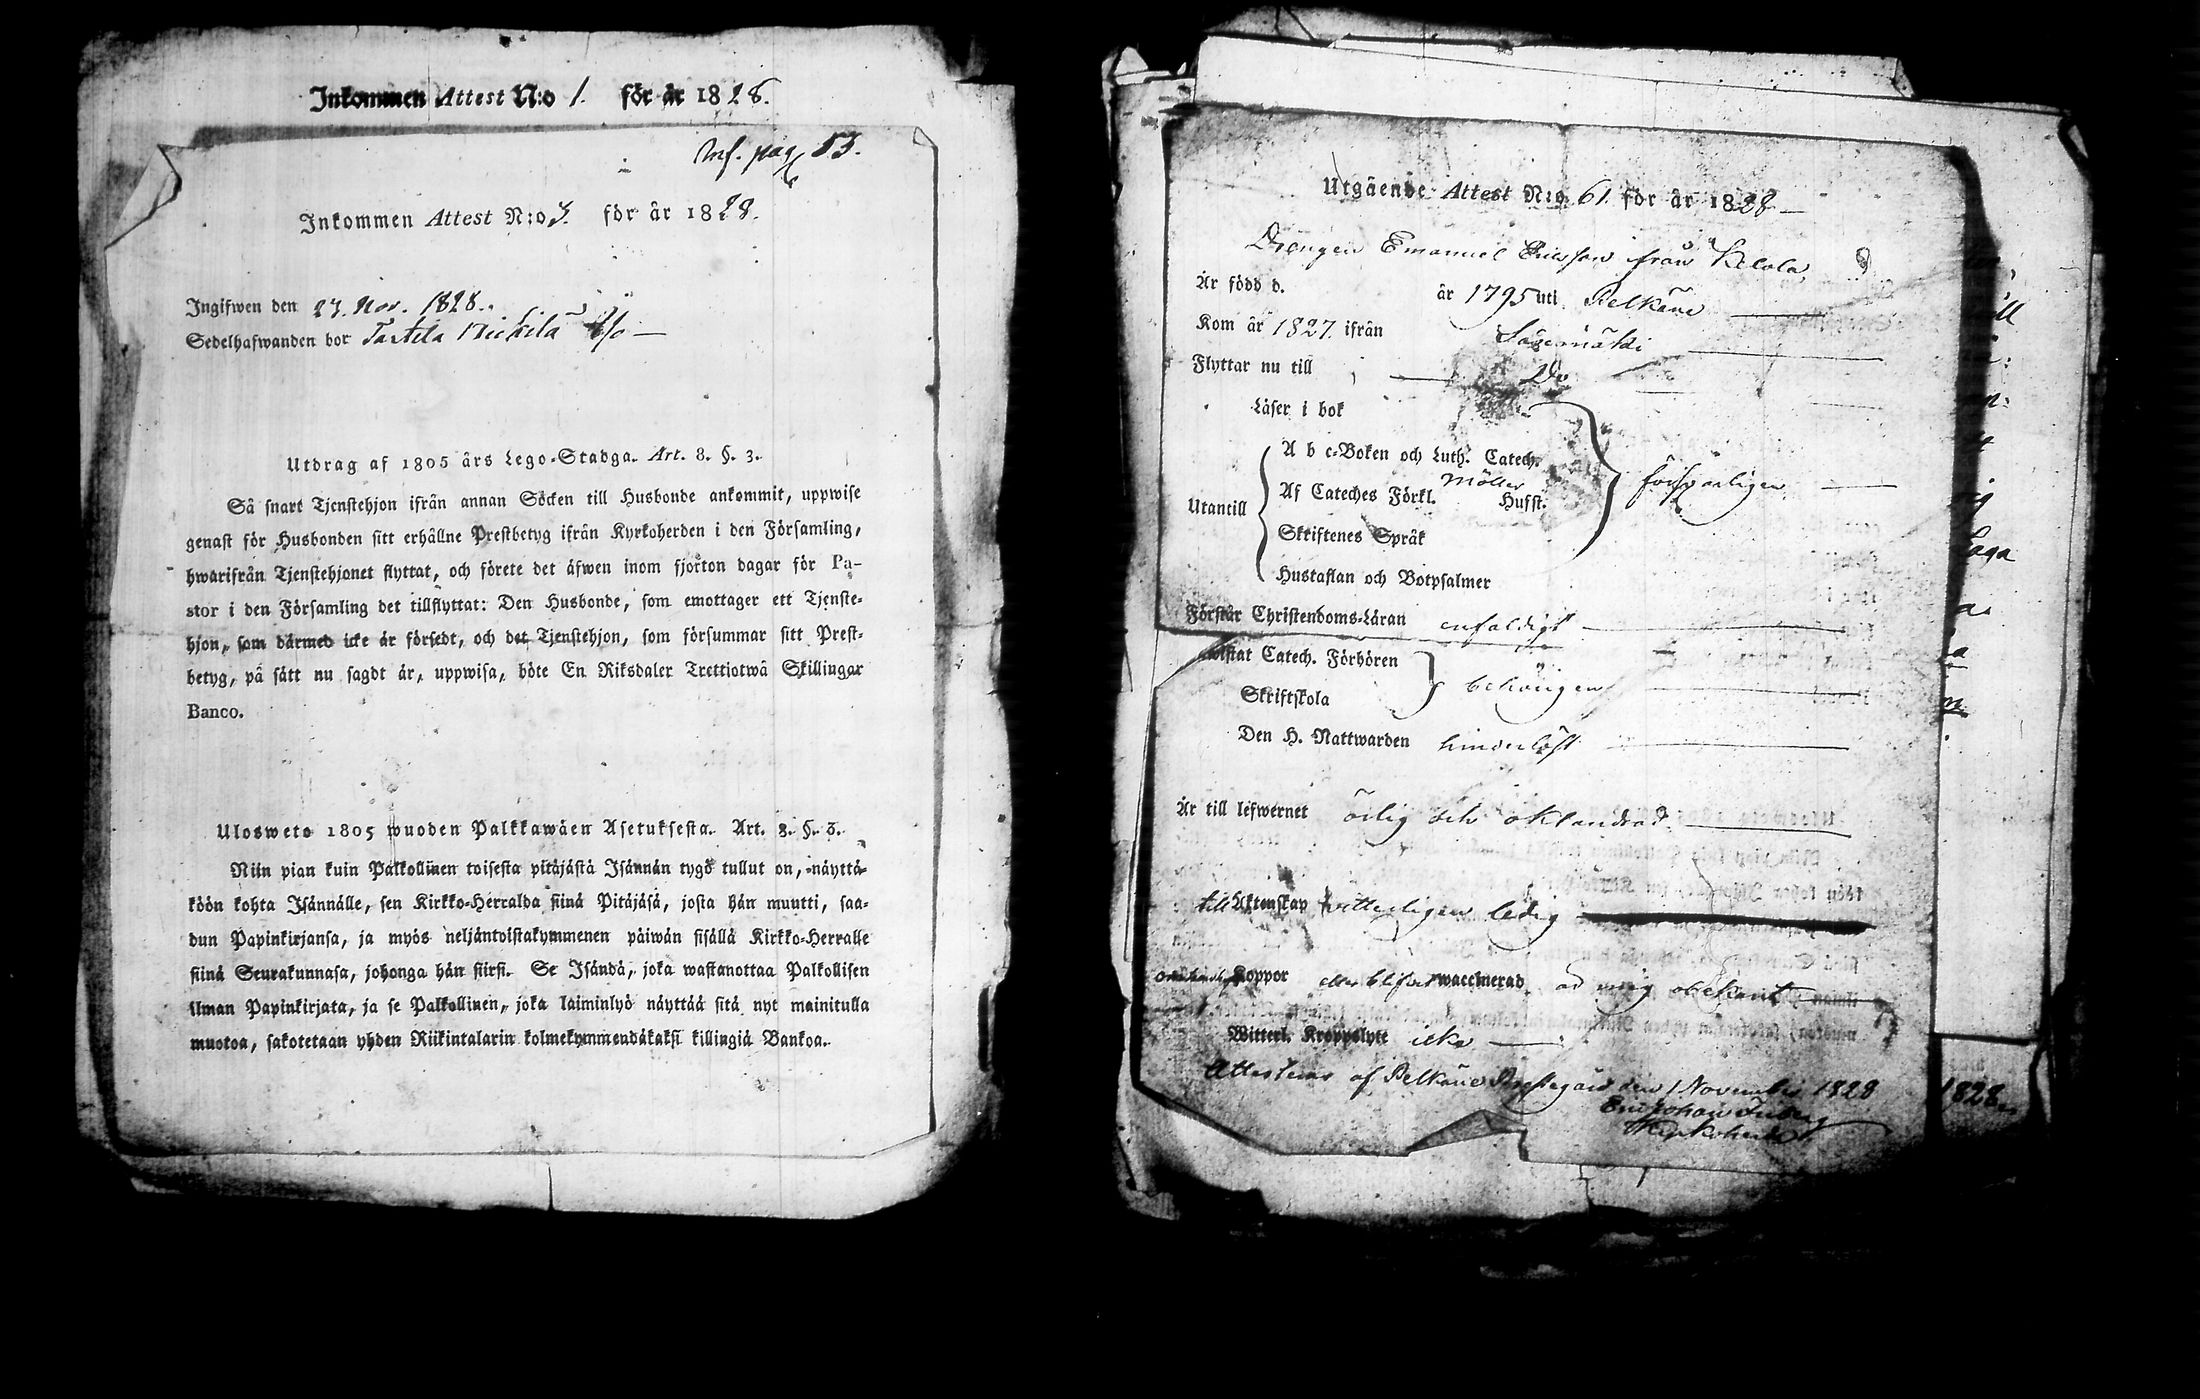 Inkommen Attest N:o 1. för år 1828.
Inf. pag 53.
Inkommen Attest N:o 3. för år 1828.
Ingifwen den 23. Nov. 1828.
Sedelhafwanden bor
Utdrag af 1805 års Lego-Stadga. Art. 8. §. 3.
Så snart Tjenstehjon ifrån annan Söcken till Husbonde ankommit, uppwise
genast för Husbonden sitt erhållne Prestbetyg ifrån Kyrkoherden i den Församling,
hwarifrån Tjenstehjonet flyttat, och förete det äfwen inom fjorton dagar för Pa-
stor i den Församling det tillflyttat: Den Husbonde, som emottager ett Tjenste-
hjon, som därmed icke är försedt, och det Tjenstehjon, som försummar sitt Prest-
betyg, på sätt nu sagdt är, uppwisa, böte En Riksdaler Trettiotwå Skillingar
Banco.
Ulosweto 1805 wuoden Palkkawäen Asetuksesta. Art. 8. §. 3.
Niin pian kuin Palkollinen toisesta pitäjästä Isännän tygö tullut on, näyttä-
köön kohta Isännälle, sen Kirkko-Herralda siinä Pitäjäsä, josta hän muutti, saa-
dun Papinkirjansa, ja myös neljäntoistakymmenen päiwän sisällä Kirkko-Herralle
siinä Seurakunnasa, johonga hän siirsi. Se Isändä, joka wastanottaa Palkollisen
ilman Papinkirjata, ja se Palkollinen, joka laiminlyö näyttää sitä nyt mainitulla
muotoa, sakotetaan yhden Riikintalarin kolmekymmendäkaksi killingiä Bankoa.
Utgående Attest N:o 61 för år 1828
Drengen Emanuel Ericsson från Kelola
Är född d. år 1795 uti Pelkäne
Kom år 1827 ifrån Sääxmäki
Flyttar nu till Do
Läser i bok
Utantill
A b c-Boken och Luth. Catech.
Af Cateches Förkl. Möller Husst.
Skriftenes Språk
försvarligen
Hustaflan och Botpsalmer
Förstår Christendoms-Läran enfaldigt
wistat Catech. Förhören
Skriftskola
behörigen
Den H. Nattwarden hinderlöst
Är till lefwernet ärlig och oklandrad
till Äktenskap vitterligen ledig
Koppor eller blifvit waccinerad är mig obekant
Witterl. Kroppslyte icke
Attesteras af Pelkäne Prestegård den 1 Novembris 1828
Kyrkoherde
1828.